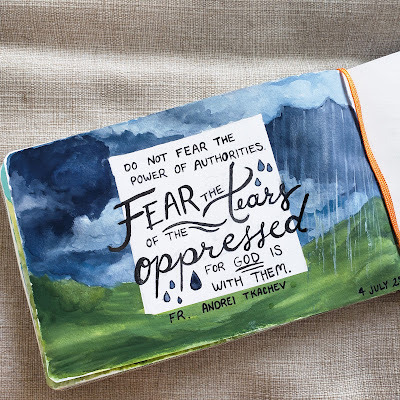 DO NOT FEAR THE
POWER OF AUTHORITIES.
FEAR THE tears
OF THE
oppressed
FOR GOD IS
WITH THEM.
FR. ANDREI TKACHEV
4 JULY